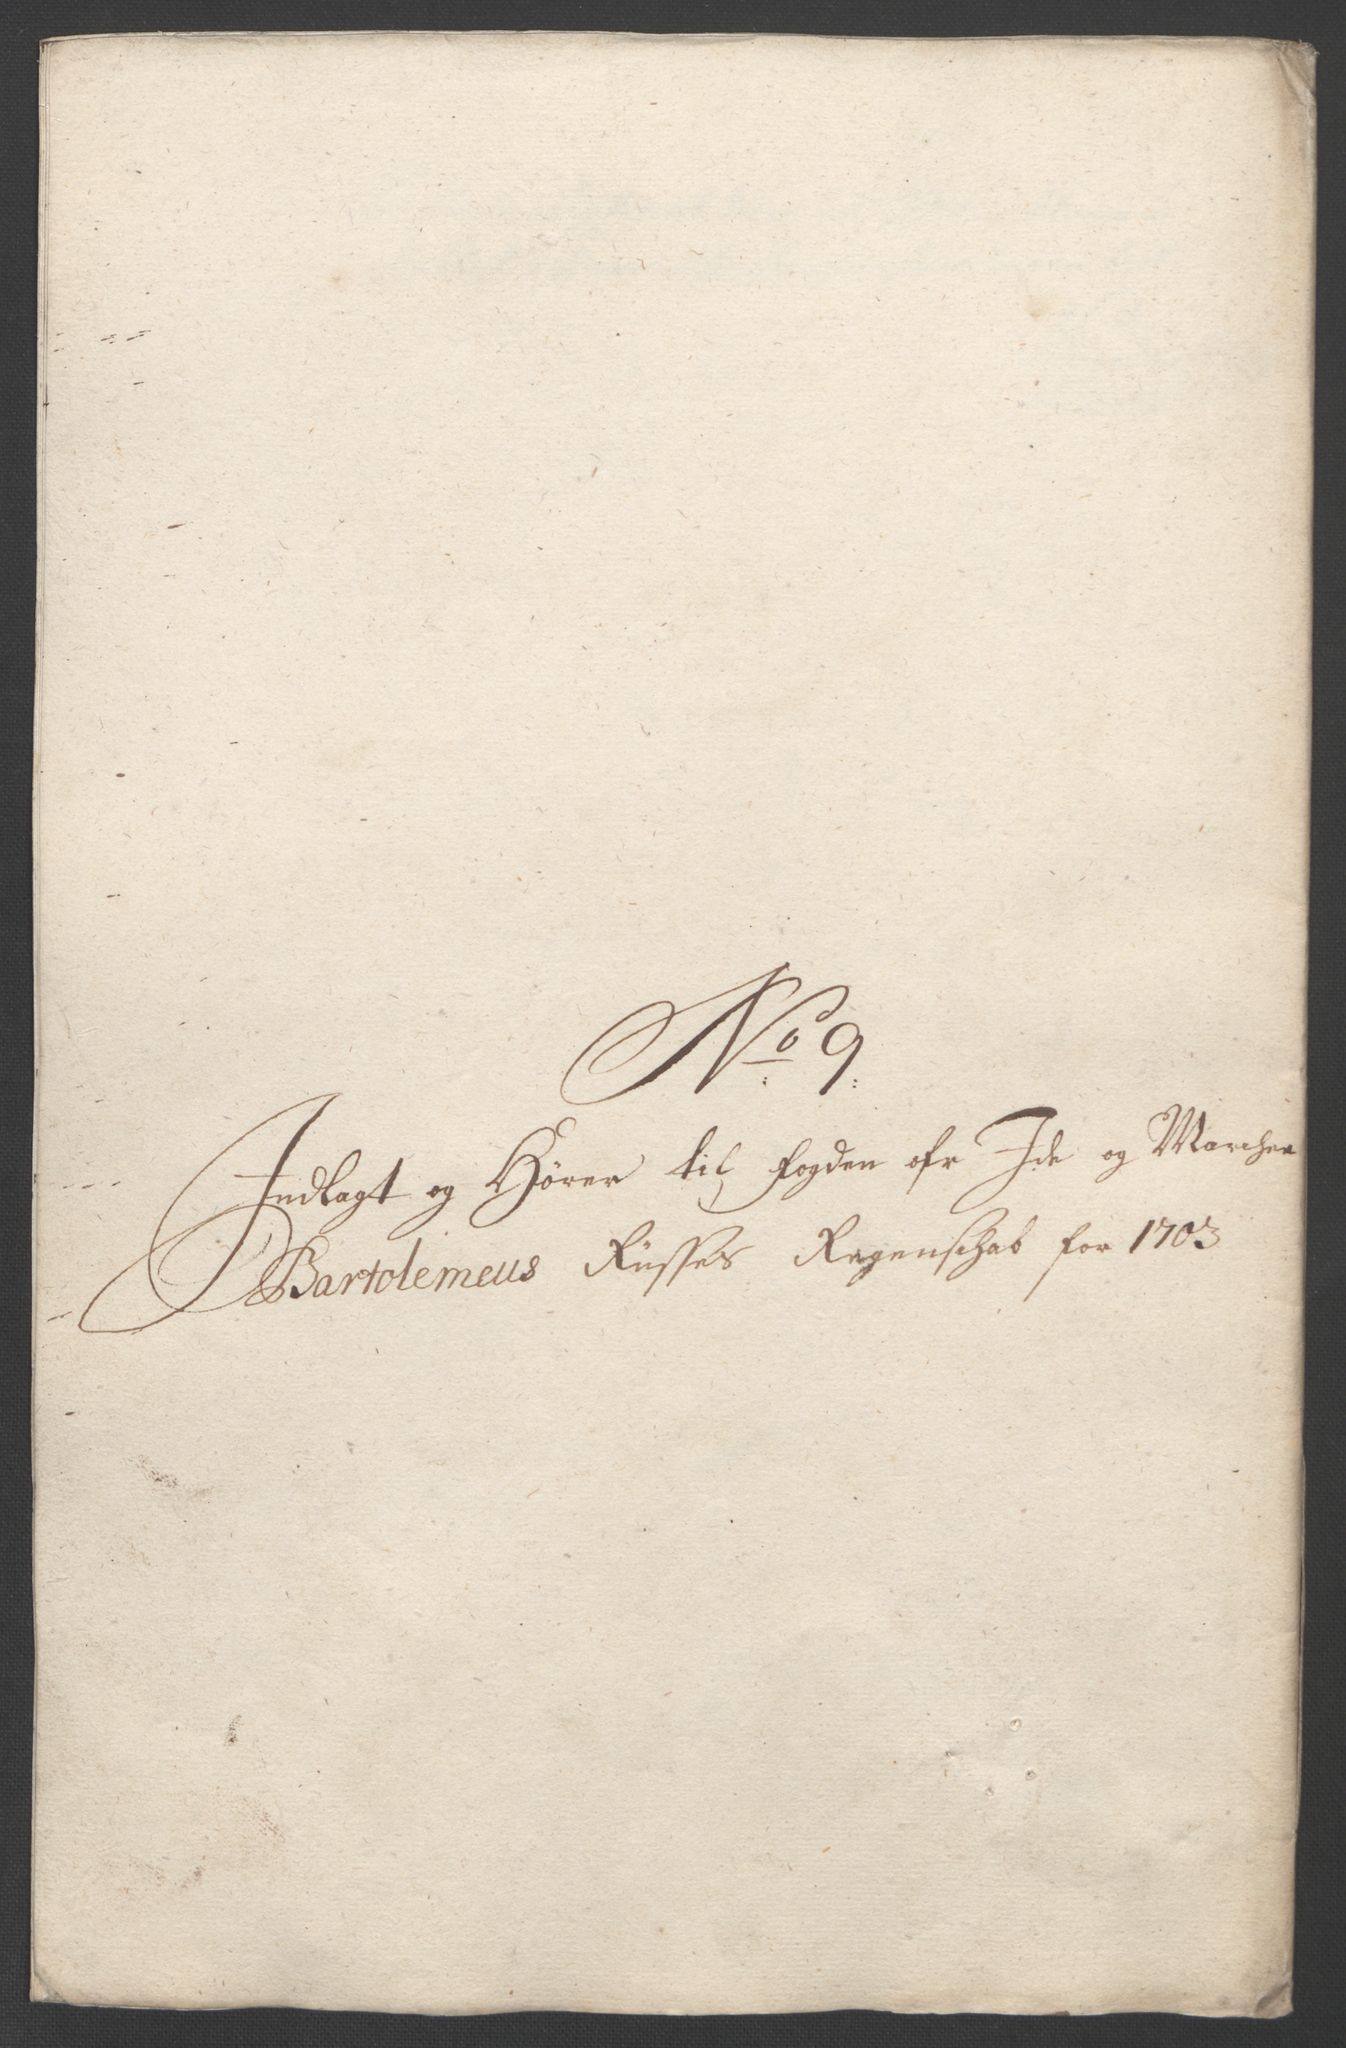 No 9
Indlagt og Hörer til fogden ofr Ide og Marcher
Bartolemeus Rüsses Regenschab for 1703